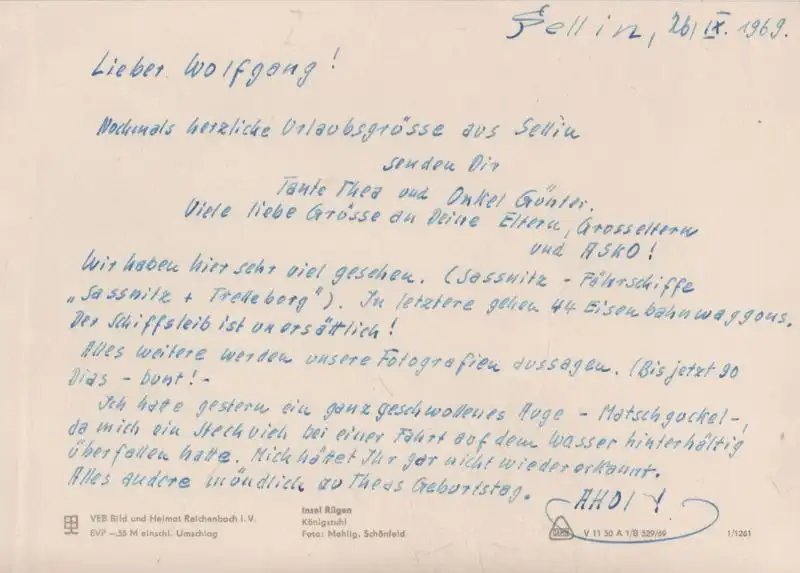 Sellin, 26/IX. 1969.
Lieber Wolfgang!
Nochmals herzliche Urlaubsgrüsse aus Sellin
senden Dir
Tante Thea und Onkel Günter.
Viele liebe Grüsse an Deine Eltern, Grosseltern
und ASKO!
Wir haben hier sehr viel gesehen. (Sassnitz - Fährschiffe
„Sassnitz + Trelleborg"). In letztere gehen 44 Eisenbahnwaggons.
Der Schiffsleib ist unersättlich!
Alles weitere werden unsere Fotografien aussagen. (Bis jetzt 90
Dias - bunt! -
Ich hatte gestern ein ganz geschwollenes Auge - Matschgockel -,
da mich ein Stechvieh bei einer Fahrt auf dem Wasser hinterhältig
überfallen hatte. Mich hättet Ihr gar nicht wiedererkannt.
Alles andere mündlich zu Theas Geburtstag.
AHOI!
VEB Bild und Heimat Reichenbach i. V.
EVP -,55 M einschl. Umschlag
Insel Rügen
Königstuhl
Foto: Mehlig, Schönfeld
V 11 50 A 1/B 529/69
1/1261